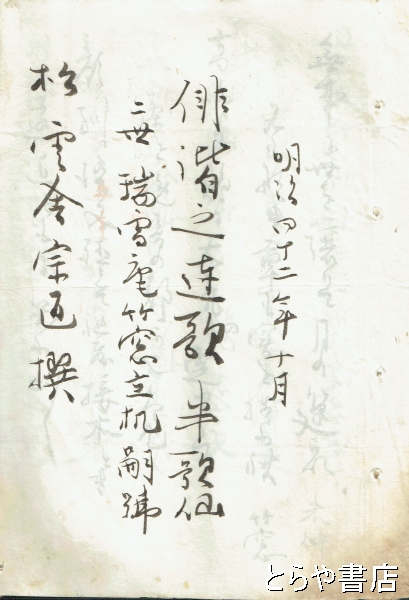 明治四十二年十月
俳諧之連歌 半歌仙
二世 瑞雪庵竹窓立机嗣號
松雲舎宗匠撰
とらや書店